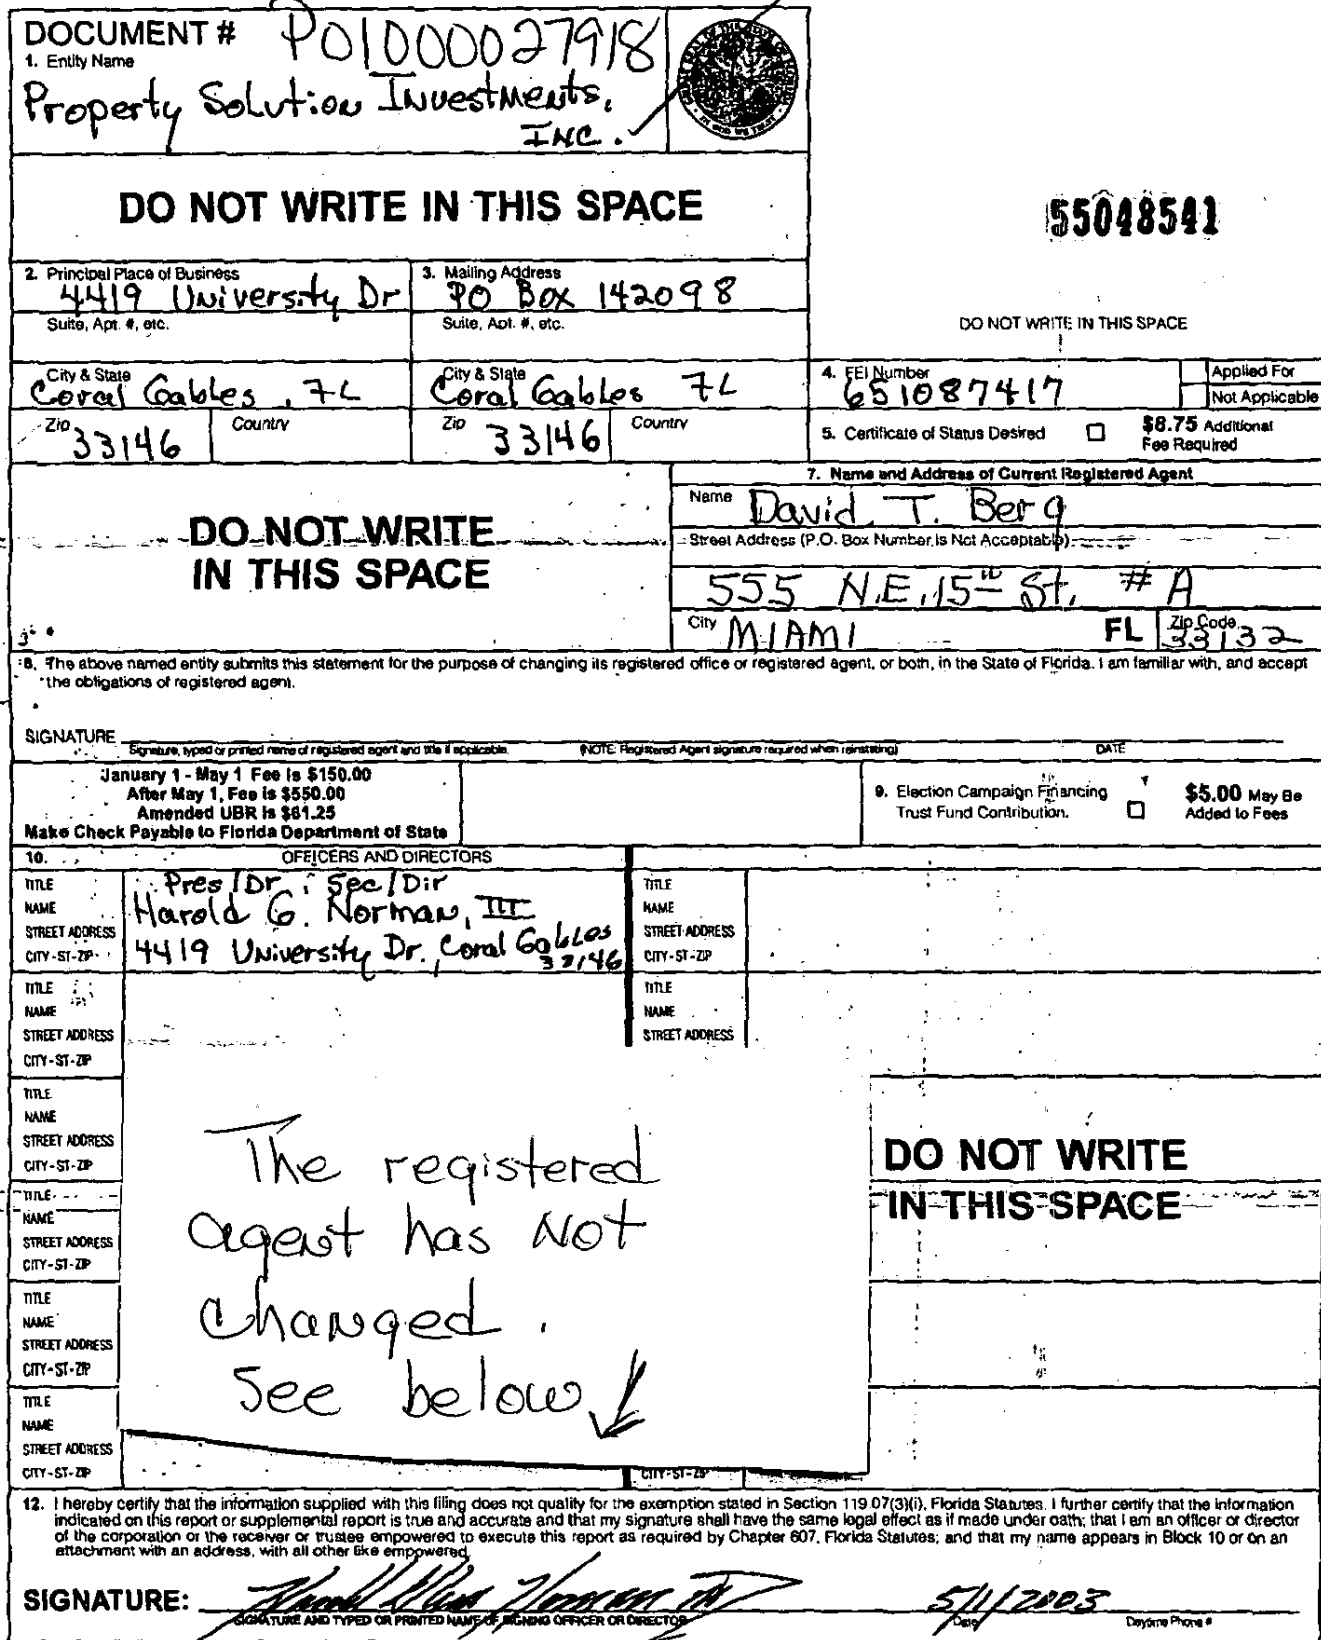 DOCUMENT # P01000027918
1. Entity Name
Property Solution Investments,
INC.
DO NOT WRITE IN THIS SPACE
55048541
2. Principal Place of Business
4419 University Dr
Suite, Apt. #, etc.
3. Mailing Address
PO Box 142098
Suite, Apt. #, etc.
DO NOT WRITE IN THIS SPACE
City & State
Coral Gables, FL
City & State
Coral Gables FL
4. FEI Number
651087417
Applied For
Not Applicable
Zip 33146
Country
Zip 33146
Country
5. Certificate of Status Desired
$8.75 Additional
Fee Required
DO NOT WRITE
IN THIS SPACE
7. Name and Address of Current Registered Agent
Name David T. Berg
Street Address (P.O. Box Number is Not Acceptable)
555 N.E. 15th St. # A
City MIAMI FL Zip Code 33132
8. The above named entity submits this statement for the purpose of changing its registered office or registered agent, or both, in the State of Florida. I am familiar with, and accept
the obligations of registered agent.
SIGNATURE
Signature, typed or printed name of registered agent and title if applicable. (NOTE: Registered Agent signature required when reinstating) DATE
January 1 - May 1 Fee is $150.00
After May 1, Fee is $550.00
Amended UBR is $61.25
Make Check Payable to Florida Department of State
9. Election Campaign Financing
Trust Fund Contribution.
$5.00 May Be
Added to Fees
10. OFFICERS AND DIRECTORS
TITLE Pres/Dr. Sec/Dir
NAME Harold G. Norman, III
STREET ADDRESS
CITY-ST-ZIP 4419 University Dr., Coral Gables
33146
TITLE
NAME
STREET ADDRESS
CITY-ST-ZIP
TITLE
NAME
STREET ADDRESS
CITY-ST-ZIP
TITLE
NAME
STREET ADDRESS
TITLE
NAME
STREET ADDRESS
CITY-ST-ZIP
TITLE
NAME
STREET ADDRESS
CITY-ST-ZIP
TITLE
NAME
STREET ADDRESS
CITY-ST-ZIP
TITLE
NAME
STREET ADDRESS
CITY-ST-ZIP
The registered
agent has Not
changed.
See below
DO NOT WRITE
IN THIS SPACE
CITY-ST-ZIP
12. I hereby certify that the information supplied with this filing does not qualify for the exemption stated in Section 119.07(3)(i), Florida Statutes. I further certify that the information
indicated on this report or supplemental report is true and accurate and that my signature shall have the same legal effect as if made under oath; that I am an officer or director
of the corporation or the receiver or trustee empowered to execute this report as required by Chapter 607, Florida Statutes; and that my name appears in Block 10 or on an
attachment with an address, with all other like empowered.
SIGNATURE: 5/1/2003
SIGNATURE AND TYPED OR PRINTED NAME OF SIGNING OFFICER OR DIRECTOR Date Daytime Phone #